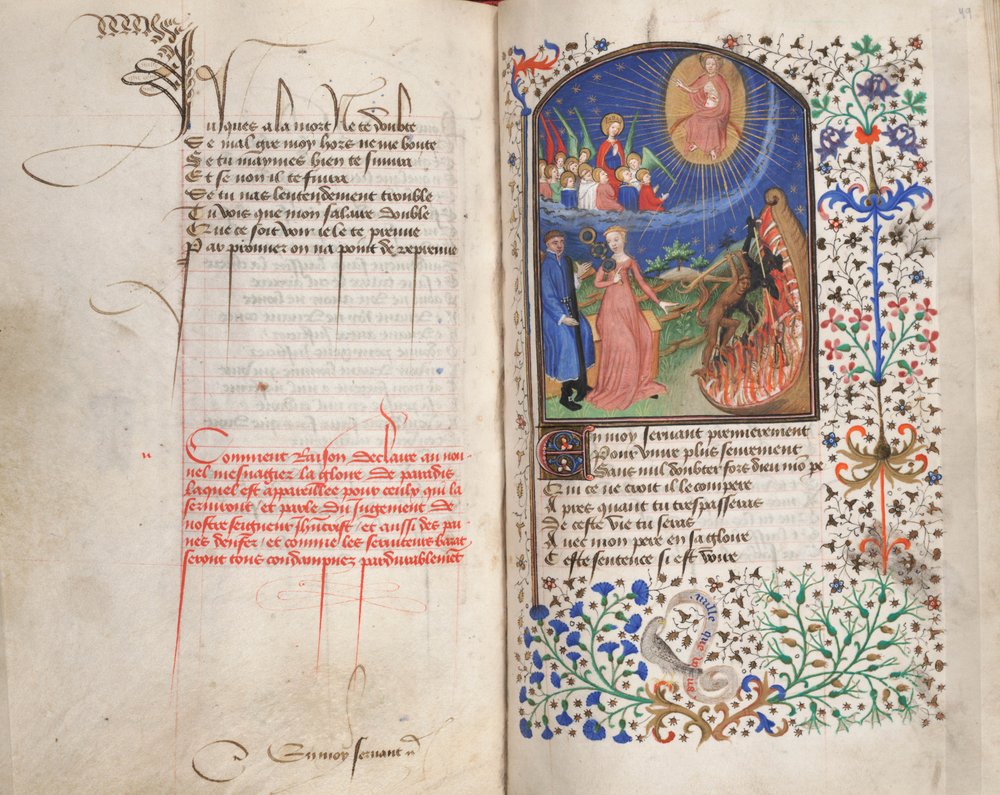 Jusques a la mort Ne te doubte
Se mal gre moy hors ne me boute
Se tu maymes bien te suiura
Et se non il te fuira
Se tu nas lentendement trouble
Tu vois que mon salaire double
Que ce soit voir ie le te preuue
Par prouuer on na point de repreuue
Comment Raison declaire au nou
uel mesnagier la gloire de paradis
laquel est appareillee pour ceulx qui la
seruiront et parle du Jugement de
nostre seigneur ihucrist et aussi des pai
nes denfer et comme les seruiteurs barat
seront tous condampnez pardurablement
En moy seruant
49
En moy seruant premierement
Pour viure plus seurement
Sans nul doubter fors dieu mon pe
Qui ce ne croit il le compere
Apres quant tu trespasseras
De ceste vie tu seras
Auec mon pere en sa gloire
Ceste sentence si est voire